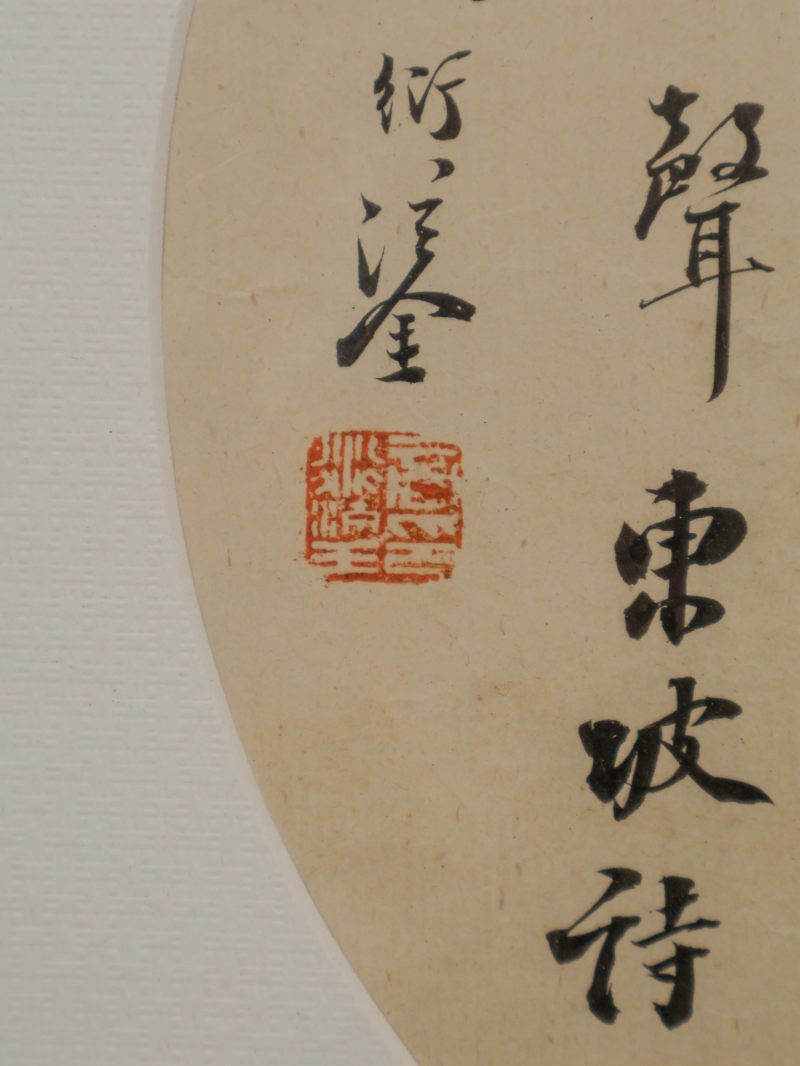 聲東坡詩
衍鎏